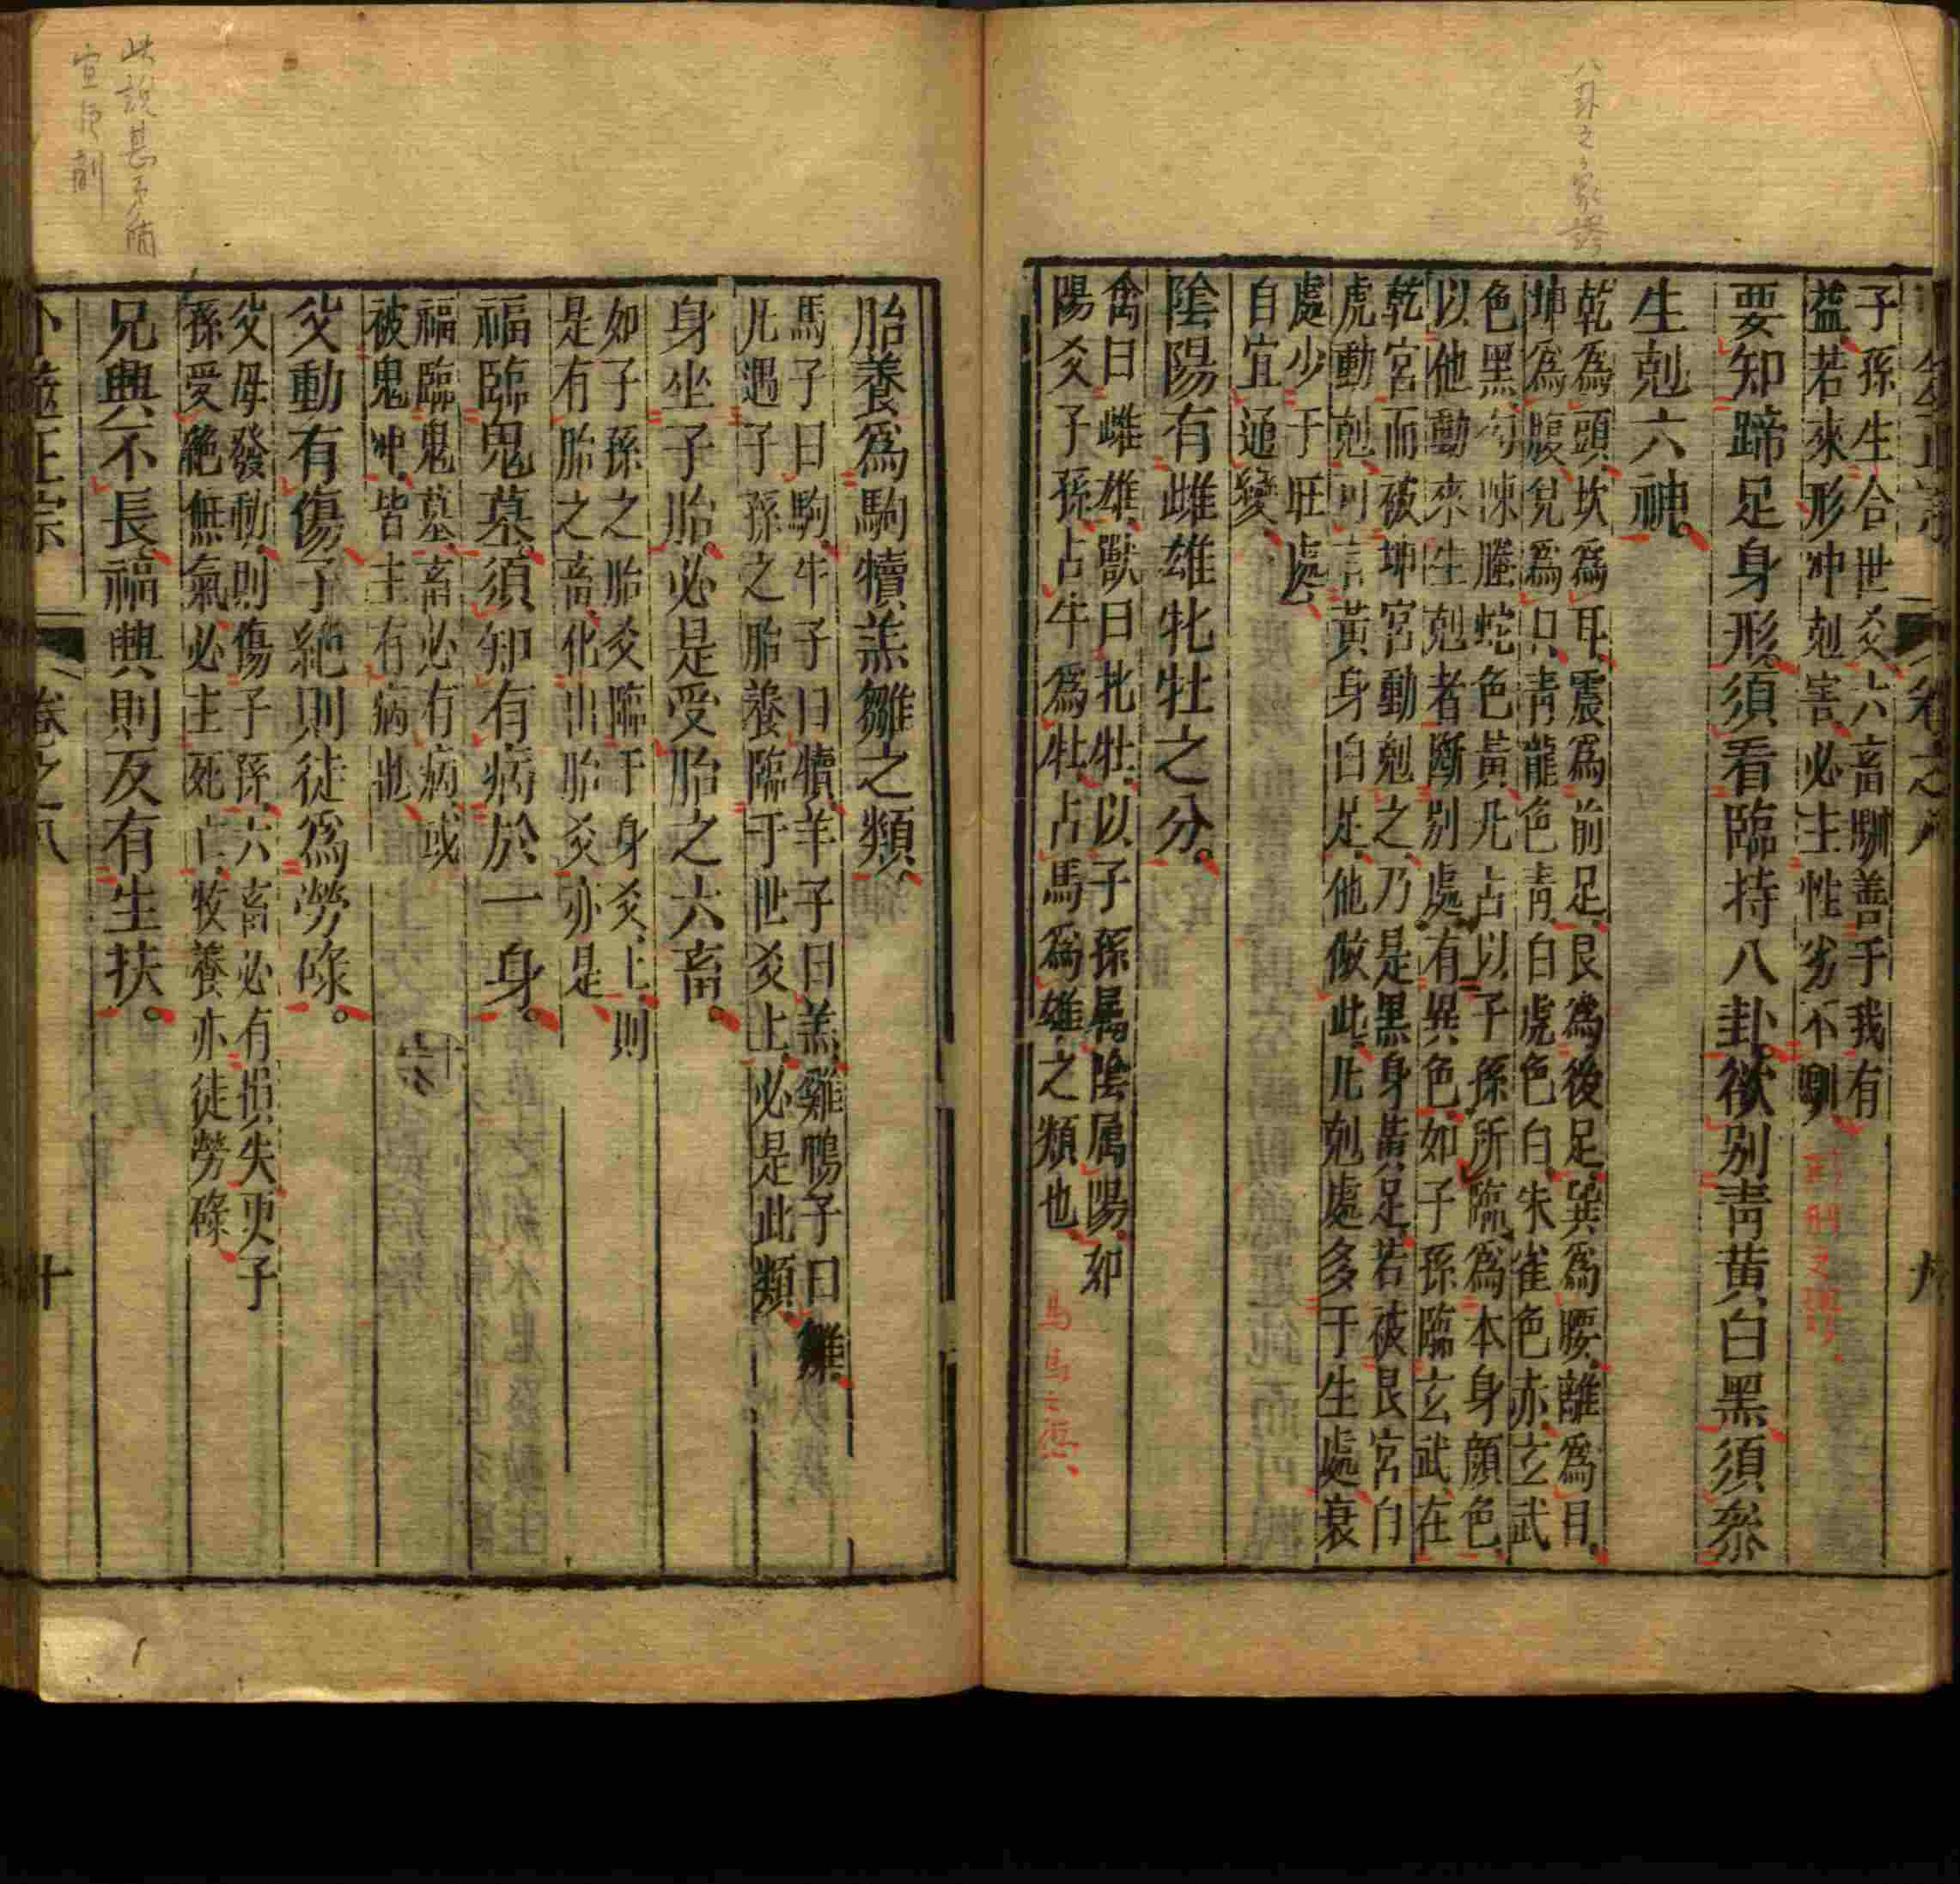 八卦之象
卷之八
九
子孫生合世爻六畜馴善于我有
益若來形冲剋害必主性劣不馴
要知蹄足身形須看臨持八卦欲別青黄白黑須叅
生剋六神。
乾爲頭坎爲耳震爲前足艮爲後足巽爲腰離爲目
坤爲腹兌爲口青龍色青白虎色白朱雀色赤玄武
色黑勾陳螣蛇色黃凡占以子孫所臨爲本身顔色
以他動來生剋者斷别處有異色如子孫臨玄武在
乾宮而被坤宮動剋之乃是黒身黃足若被艮宮白
虎動剋可言黃身白足他倣此凡剋處多于生處衰
處少于旺處
自宜通變
陰陽有雌雄牝牡之分。
禽曰雌雄獸曰牝牡以子孫屬陰属陽卯
陽爻子孫占牛爲牡占馬爲雄之類也
胎養爲駒犢羔雛之類
馬子曰駒牛子曰犢羊子曰羔雞鴨子曰雛
凡遇子孫之胎養臨于世爻上必是此類
身坐子胎必是受胎之六畜。
如子孫之胎爻臨于身爻上則
是有胎之畜化出胎爻亦是
福臨鬼墓須知有病於一身。
福臨鬼墓畜必有病或
被鬼冲皆主有病也
父動有傷子絶則徒爲勞碌。
父母發動則傷子孫六畜必有損失更子
孫受絶無氣必主死亡牧養亦徒勞碌
兄興不長福興則反有生扶。
此說甚矛盾
宜刪
卜筮正宗
卷之八
十